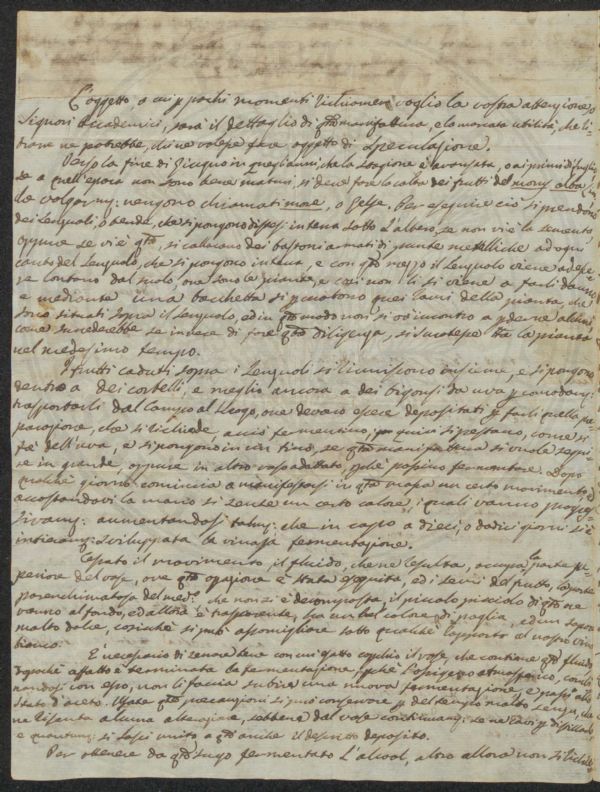 L'oggetto, a cui p pochi momenti richiamare voglio la vostra attenzione, o
Signori Accademici, sarà il dettaglio di qta manifattura, e la marcata utilità, che ri-
trarre ne potrebbe, chi ne volesse fare oggetto di speculazione.
Verso la fine di Giugno in quegli anni, che la stagione è avanzata, o ai primi di Luglio
se a quell'epoca non sono bene maturi, si deve fare la colta dei frutti del morus alba,
volgarmte vengono chiamati more, o Gelse. Per eseguire ciò si prendono
dei Lenzuoli, o tende, che si pongono distesi in terra sotto l'albero, se non vi è la semente
oppure se vi è qta, si collocano dei bastoni armati di punte metalliche ad ogni
canto del Lenzuolo, che si pongono in terra, e con qto mezzo il Lenzuolo viene ad esse-
re lontano dal suolo, ove sono le piante, e così non li si viene a farli danno
e mediante una bacchetta si percotono quei rami della pianta, che
sono situati sopra il Lenzuolo, ed in qto modo non si va incontro a perderne alcuni
come succederebbe se invece di fare qta diligenza, si scuotesse tta la pianta
nel medesimo tempo.
I frutti caduti sopra i Lenzuoli si riuniscono insieme, e si pongono
dentro a dei cortelli, e meglio ancora a dei bigonsi da uva p comodamte
trasportarli dal Campo al Luogo, ove devono essere depositati p farli quella pre-
parazione, che si richiede, acciò fermentino; p cui si pestano, come si
fà dell'uva, e si pongono in un tino, se qta manifattura si vuole segui-
re in grande, oppure in altro vaso adattato, ove possino fermentare. Dopo
qualche giorno comincia a manifestarsi in qta massa un certo movimento, ed
accostandovi la mano si sente un certo calore, i quali vanno progres-
sivamte aumentandosi talmte che in capo a dieci, o dodici giorni si è
intieramte sviluppata la vinosa fermentazione.
Cessato il movimento, il fluido, che ne resulta, occupa la parte su-
periore del vaso, ove qta operazione è stata eseguita, ed i semi del frutto, la parte
parenchimatosa del medo che non si è decomposta, il piccolo picciolo di qto ne
vanno al fondo, ed allora è trasparente, ha un bel colore di paglia, ed un sapore
molto dolce, cosicchè si può assomigliare sotto qualche rapporto al nostro vino
bianco.
È necessario di tenere bene con un gatto coperchio il vaso, che contiene qto fluido,
dopochè affatto è terminata la fermentazione, pchè l'ossigeno atmosferico, combi-
nandosi con esso, non li faccia subire una nuova fermentazione, e passi allo
stato d'aceto. Usate qte precauzioni si può conservare p del tempo molto senza, che
ne risenta alcuna alterazione, sebbene dal vaso continuamte se ne cavi p distillarlo
e quantunque si lasci unito a qto anche il descritto deposito.
Per ottenere da qto sugo fermentato l'alcool, altro allora non si richie-